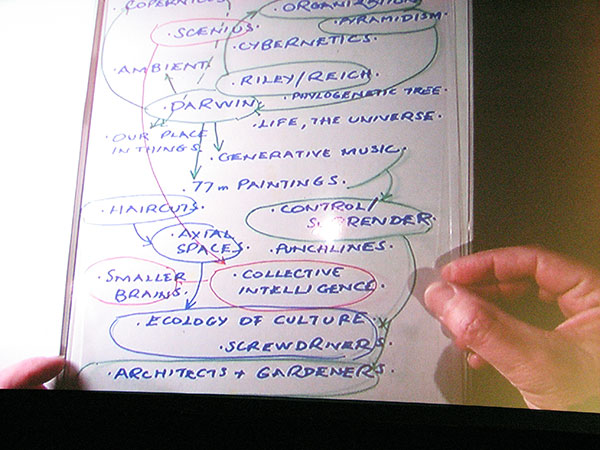 · COPERNICUS
· ORGANIZATION
· PYRAMIDISM.
· SCENIUS
· CYBERNETICS.
· AMBIENT
· RILEY/REICH
· PHYLOGENETIC TREE.
· DARWIN
· LIFE, THE UNIVERSE.
· OUR PLACE
IN THINGS.
· GENERATIVE MUSIC.
· 77m PAINTINGS.
· HAIRCUTS.
· CONTROL/
SURRENDER.
· AXIAL
SPACES.
· PUNCHLINES.
· SMALLER
BRAINS.
· COLLECTIVE
INTELLIGENCE
· ECOLOGY OF CULTURE.
· SCREWDRIVERS.
· ARCHITECTS + GARDENERS.